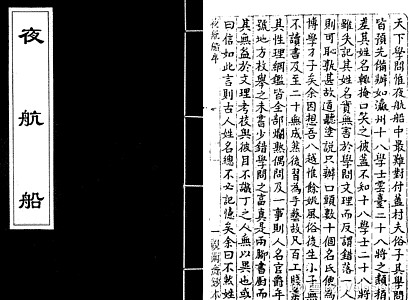 夜航船
天下學問惟夜航船中最難對付蓋村夫俗子其學問
皆預先備辦如瀛洲十八學士雲臺二十八將之類稍
差其姓名輒掩口笑之彼蓋不知十八學士二十八將
雖失記其姓名實無害於學問文理而反謂錯落一人
則可恥孰甚故道聽塗說只辦口頭數十個名氏便為
博學才子矣余因想吾八越惟餘姚風俗後生小子無
不讀書及至二十無成然後習為手藝故凡百工賤業
其性理綱鑑皆全部爛熟偶問及一事則人名官爵年
號地方枚舉之未嘗少錯學問之富真是兩腳書廚而
其無益於文理考校與彼目不識丁之人無以異也或
曰信如此言則古人姓名總不必記憶矣余曰不然姓
夜航船序